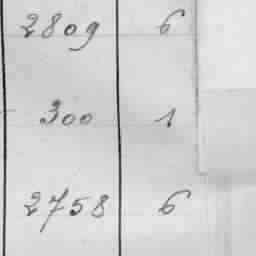 2809 6
300 1
2758 6